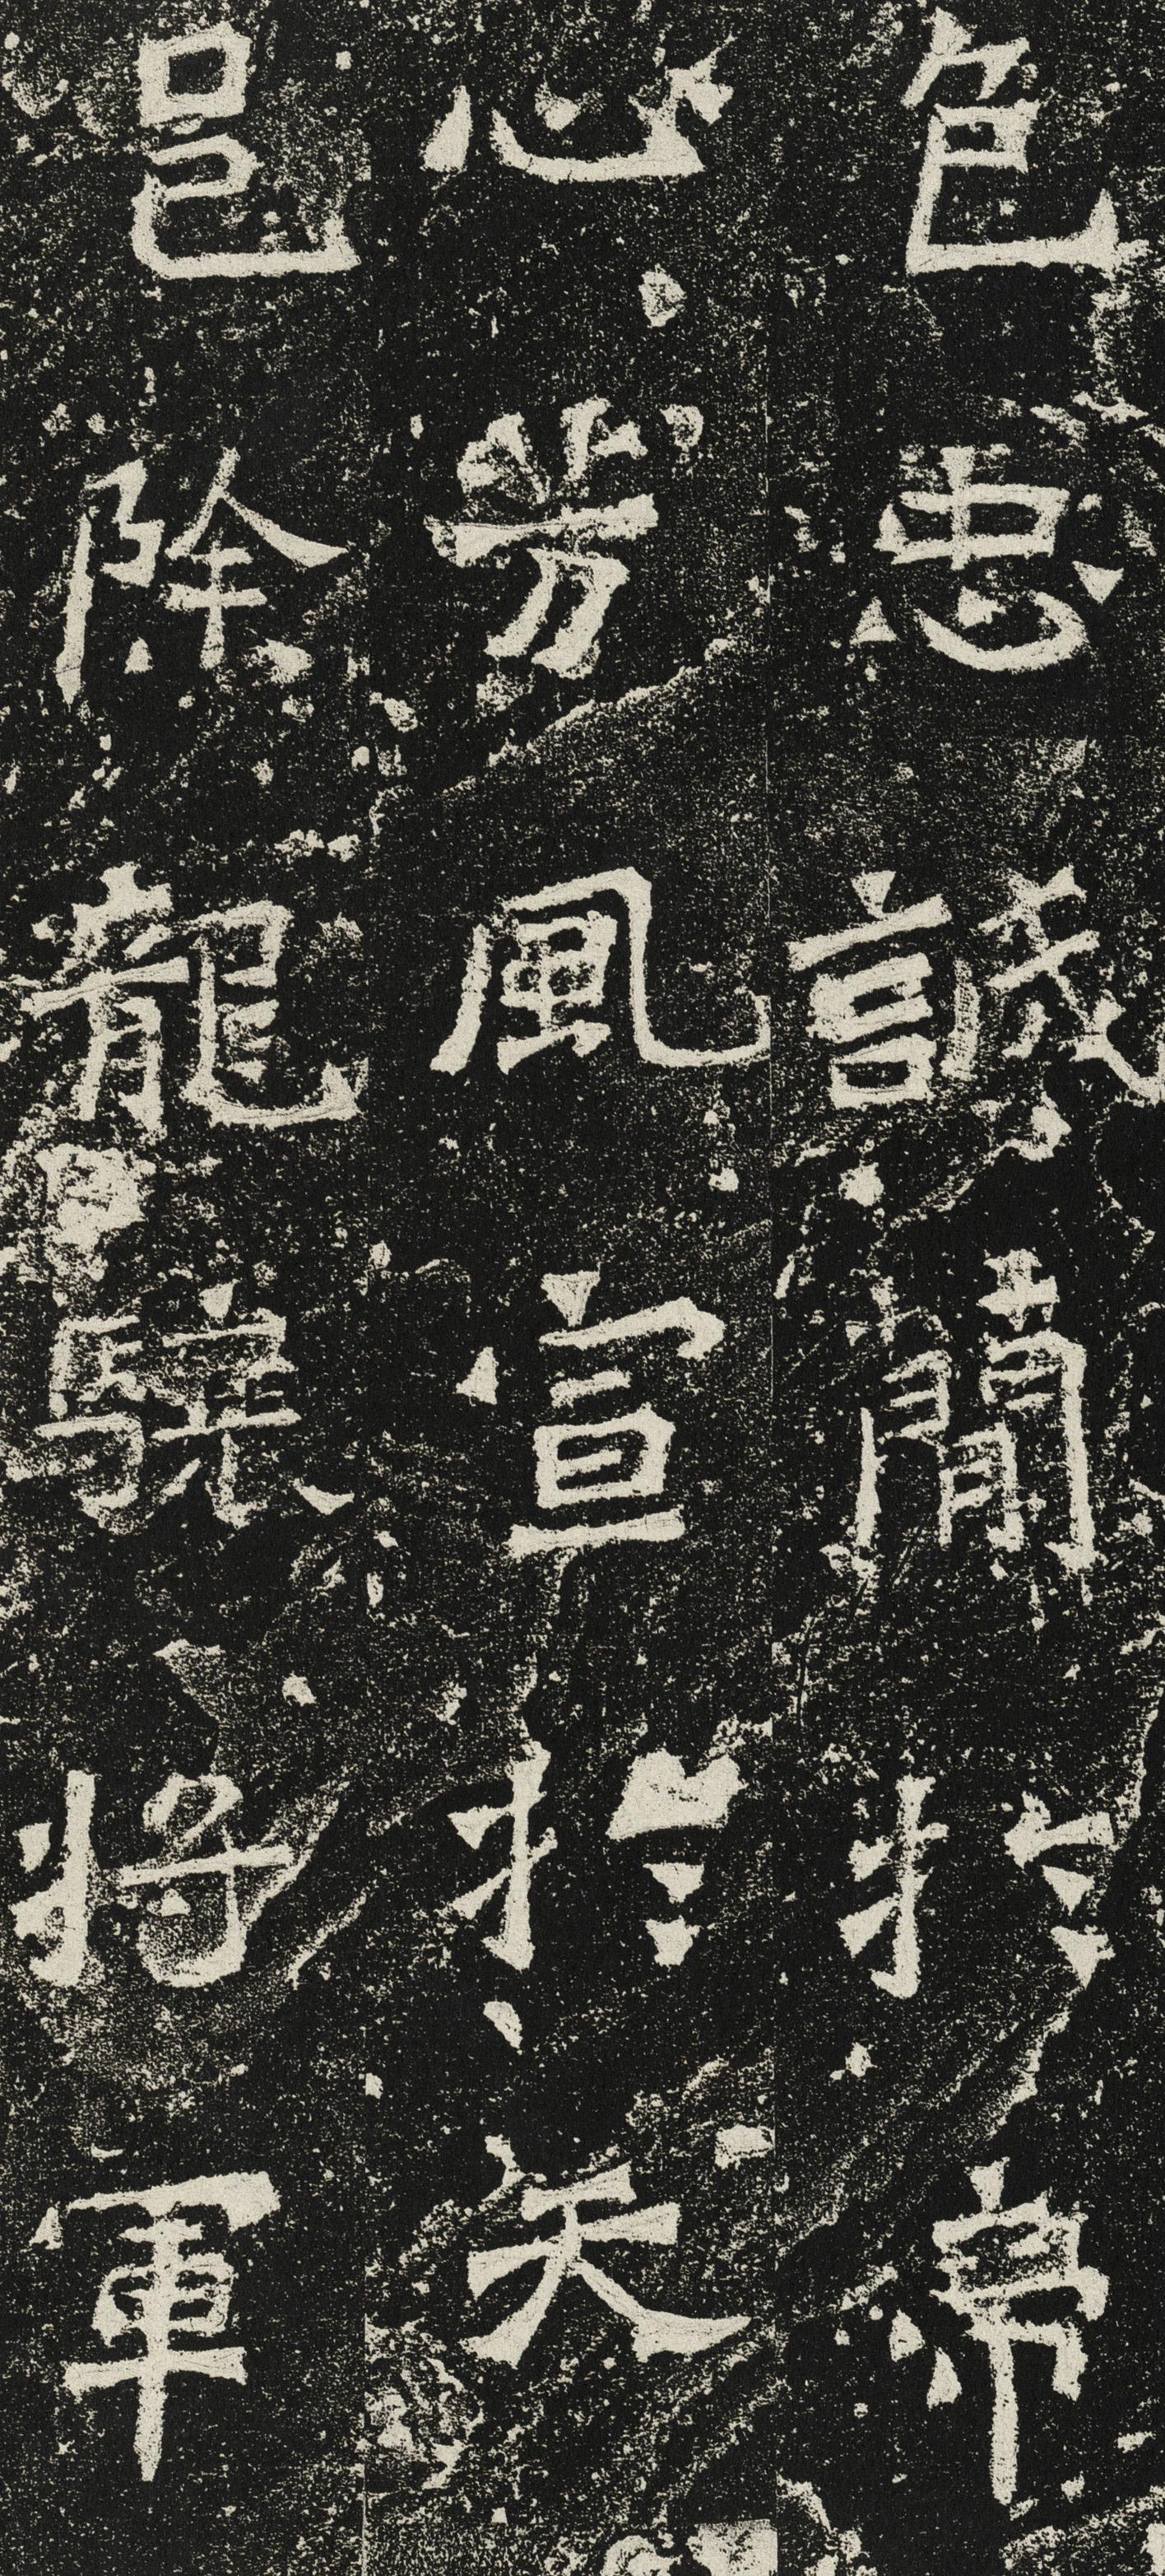 色忠誠簡於帝
心芳風宣於天
邑除龍驤將軍